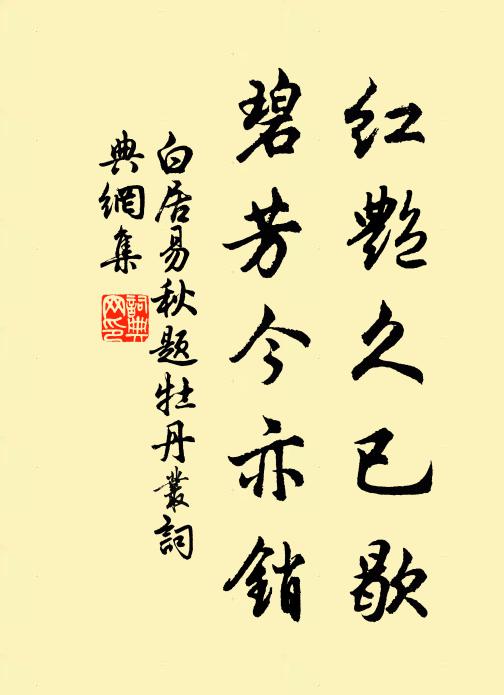 红艳久已歇
碧芳今亦销
白居易秋题牡丹丛词
典網集
詞典
网印